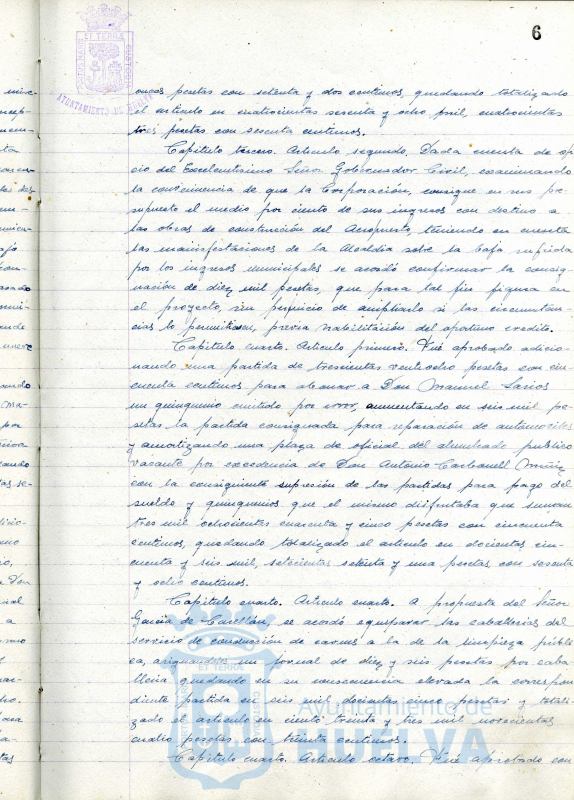 6
oncas pesetas con setenta y dos centimos, quedando totalizado
el articulo en cuatrocientas sesenta y ocho mil, cuatrocientas
tres pesetas con sesenta centimos.
Capitulo tercero. Articulo segundo. Dada cuenta de ofi
cio del Excelentisimo Señor Gobernador Civil, examinando
la conveniencia de que la Corporación, consigne en sus pre
supuesto el medio por ciento de sus ingresos con destino a
las obras de construcción del Aeropuerto, teniendo en cuenta
las manifestaciones de la Alcaldia sobre la baja sufrida
por los ingresos municipales se acordó confirmar la consig-
nación de diez mil pesetas, que para tal fin figura en
el proyecto, sin perjuicio de ampliarlo si las circunstan-
cias lo permitiesen, previa habilitación del oportuno credito.
Capitulo cuarto. Articulo primero. Fué aprobado adicio-
nando una partida de trescientas veintiocho pesetas con cin-
cuenta centimos para abonar a Don Manuel
un quinquenio omitido por error, aumentando en seis mil pe-
setas la partida consignada para reparación de automoviles
y amortizando una plaza de oficial del alumbrado publico
vacante por excedencia de Don Antonio Carbonell Muñiz
con la consiguiente supresión de las partidas para pago del
sueldo y quinquenios que el mismo disfrutaba que suman
tres mil ochocientas cuarenta y cinco pesetas con cincuenta
centimos, quedando totalizado el articulo en docientas cin-
cuenta y seis mil, setecientas setenta y una pesetas con sesenta
y ocho centimos.
Capitulo cuarto. Articulo cuarto. A propuesta del Señor
Garcia de Castellón, se acordó equiparar las caballerias del
servicio de conducción de carnes a la de la limpieza públi-
ca, asignandoles un jornal de diez y seis pesetas por caba-
lleria quedando en su consecuencia elevada la correspon
diente partida en seis mil docientas pesetas y totali-
zado el articulo en ciento treinta y tres mil novecientas
cuatro pesetas con treinta centimos.
Capitulo cuarto. Articulo octavo. Fué aprobado con
AYUNTAMIENTO DE HUELVA
Ayuntamiento de
HUELVA